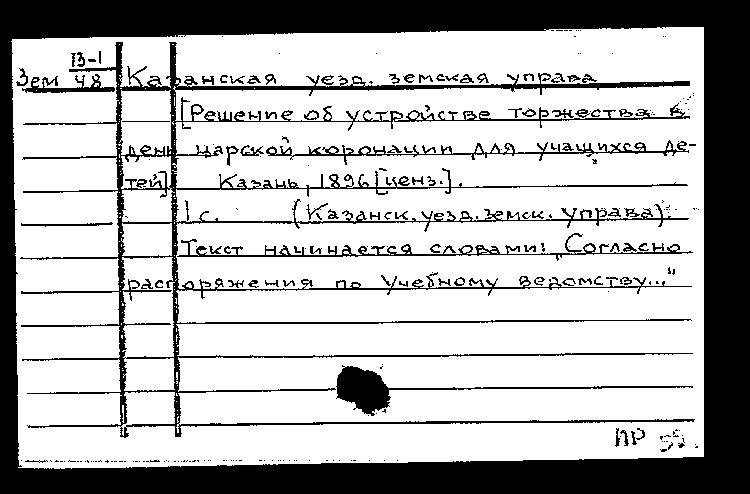 13-1
Зем 48 Казанская уезд. земская управа
[Решение об устройстве торжества в
день царской коронации для учащихся де-
тей]. Казань, 1896 [ценз.].
1 с. (Казанск. уезд. земск. управа).
Текст начинается словами: „Согласно
распоряжения по Учебному ведомству..."
ПР